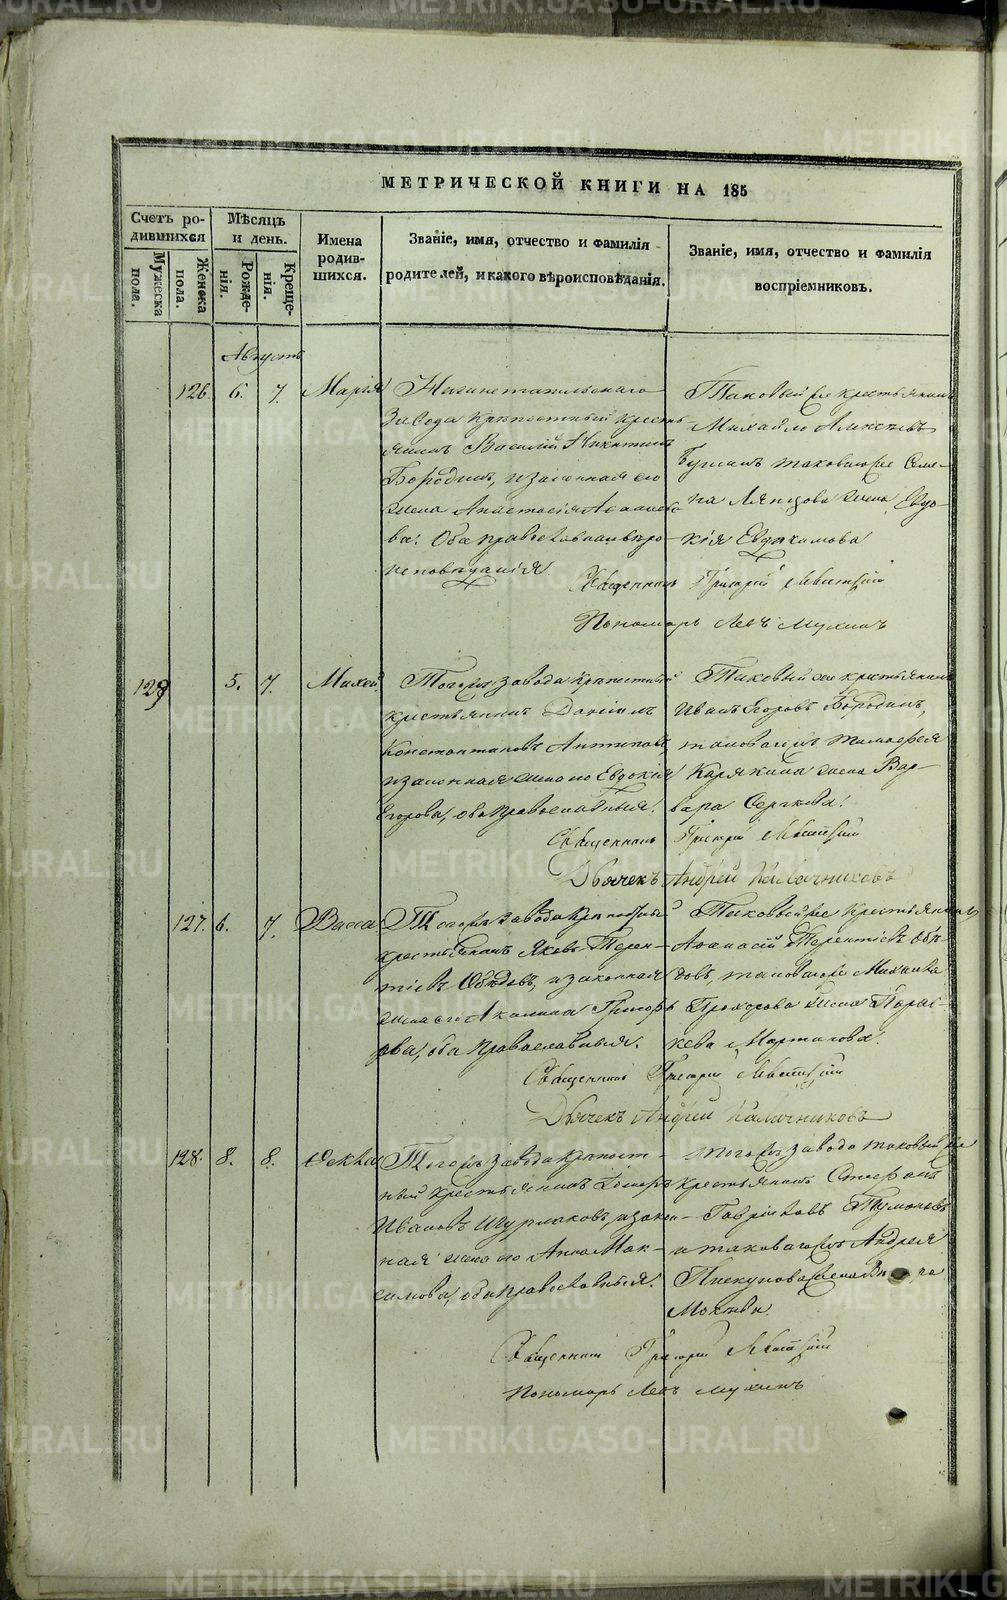 METRIKI.GASO-URAL.RU
МЕТРИЧЕСКОЙ КНИГИ НА 185
Счетъ ро-
дившихся
Мужеска
пола.
Женска
пола.
Мѣсяцъ
и день.
Рожде-
нія.
Креще-
нія.
Имена
родив-
шихся.
Званіе, имя, отчество и фамилія
родителей, и какого вѣроисповѣданія.
Званіе, имя, отчество и фамилія
воспріемниковъ.
Августъ
126. 6. 7. Марія
завода крѣпостный кресть
янинъ Василій Никитинъ
Бородинъ, и законная его
жена Анастасія
ва. Оба православнаго вѣро
исповѣданія.
Таковый же крестьянинъ
Михайло Алексѣевъ
таковаго же Семе-
на жена Евдо-
кія Евдокимова
Священникъ Григорій
Пономарь Левъ Мухинъ
129 5. 7. Михей
Тогожъ завода крѣпостный
крестьянинъ Даніилъ
Константиновъ Антиповъ
и законная жена его Евдокія
Егорова, оба православныя.
Таковый же крестьянинъ
Иванъ Егоровъ Бородинъ,
таковагожъ Тимофея
Карякина жена Вар-
вара Сергѣева.
Священникъ Григорій
Дьячекъ Андрей Калачниковъ
127. 6. 7. Васса
Тогожъ завода крѣпостный
крестьянинъ Яковъ Терен-
тіевъ Обѣдовъ, и законная
жена его Акилина Григорь
ева, оба православныя.
Таковый же крестьянинъ
Афанасій Терентіевъ Обѣ-
довъ, таковагоже Михаила
Прохорова жена Парас-
кева Мартинова.
Священникъ Григорій
Дьячекъ Андрей Калачниковъ
128. 8. 8. Фекла
Тогожъ завода крѣпост-
ный крестьянинъ
Ивановъ и закон-
ная жена его Анна Мак-
симова, оба православныя.
Тогожъ завода таковый же
крестьянинъ Стефанъ
Гавриловъ Тумановъ
и таковагожъ Андрея
Пискунова жена
Мокѣева
Священникъ Григорій
Пономарь Левъ Мухинъ